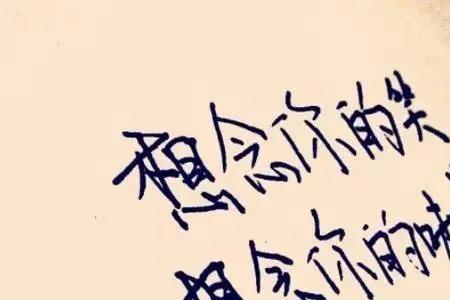 想念你的笑
想念你的